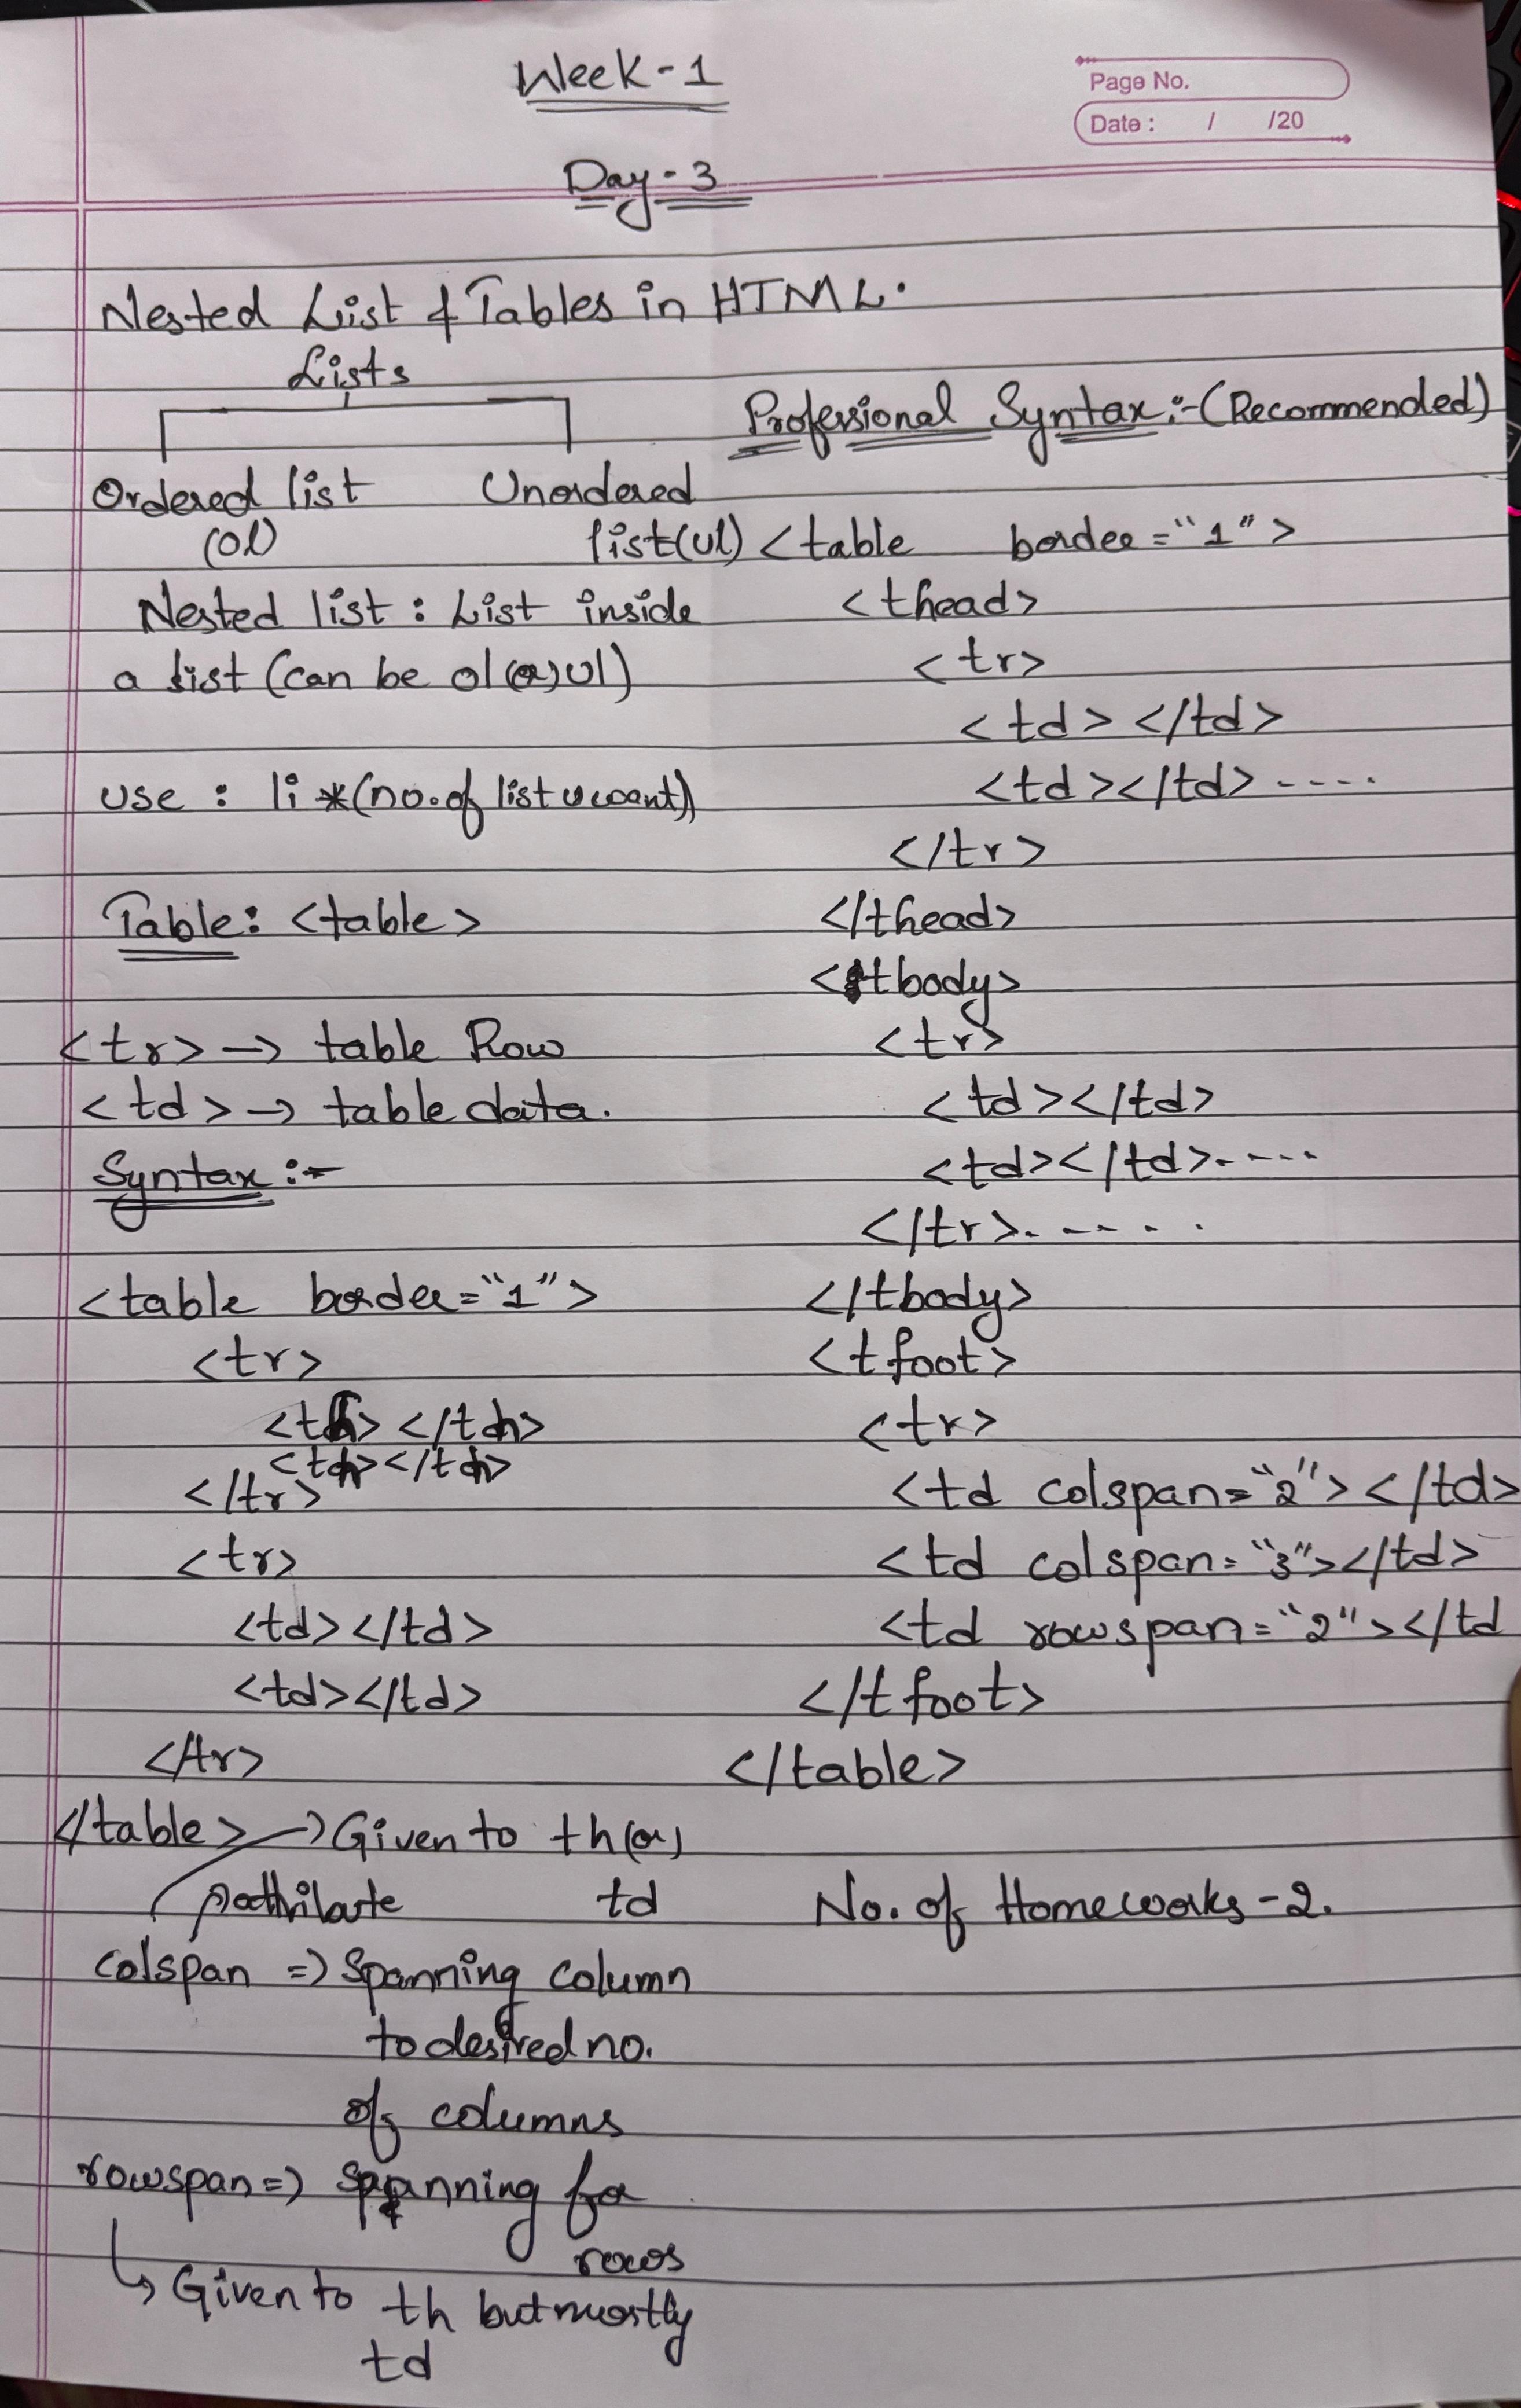 Week-1
Page No.
Date : / /20
Day-3
Nested List & Tables in HTML.
Lists
Ordered list Unordered
(ol) list(ul)
Nested list : List inside
a list (can be ol (or) ul)
use : li *(no. of list u want)
Table: <table>
<tr> → table Row
<td> → table data.
Syntax :-
<table border="1">
<tr>
<th> </th>
<th></th>
</tr>
<tr>
<td></td>
<td></td>
</tr>
</table> → Given to th (or)
attribute td
colspan => Spanning column
to desired no.
of columns
rowspan => spanning for
rows
↳ Given to th but mostly
td
Professional Syntax :- (Recommended)
<table border="1">
<thead>
<tr>
<td> </td>
<td></td> ----
</tr>
</thead>
<tbody>
<tr>
<td></td>
<td></td>----
</tr>-----
</tbody>
<tfoot>
<tr>
<td colspan="2"></td>
<td colspan="3"></td>
<td rowspan="2"></td
</tfoot>
</table>
No. of Homeworks-2.